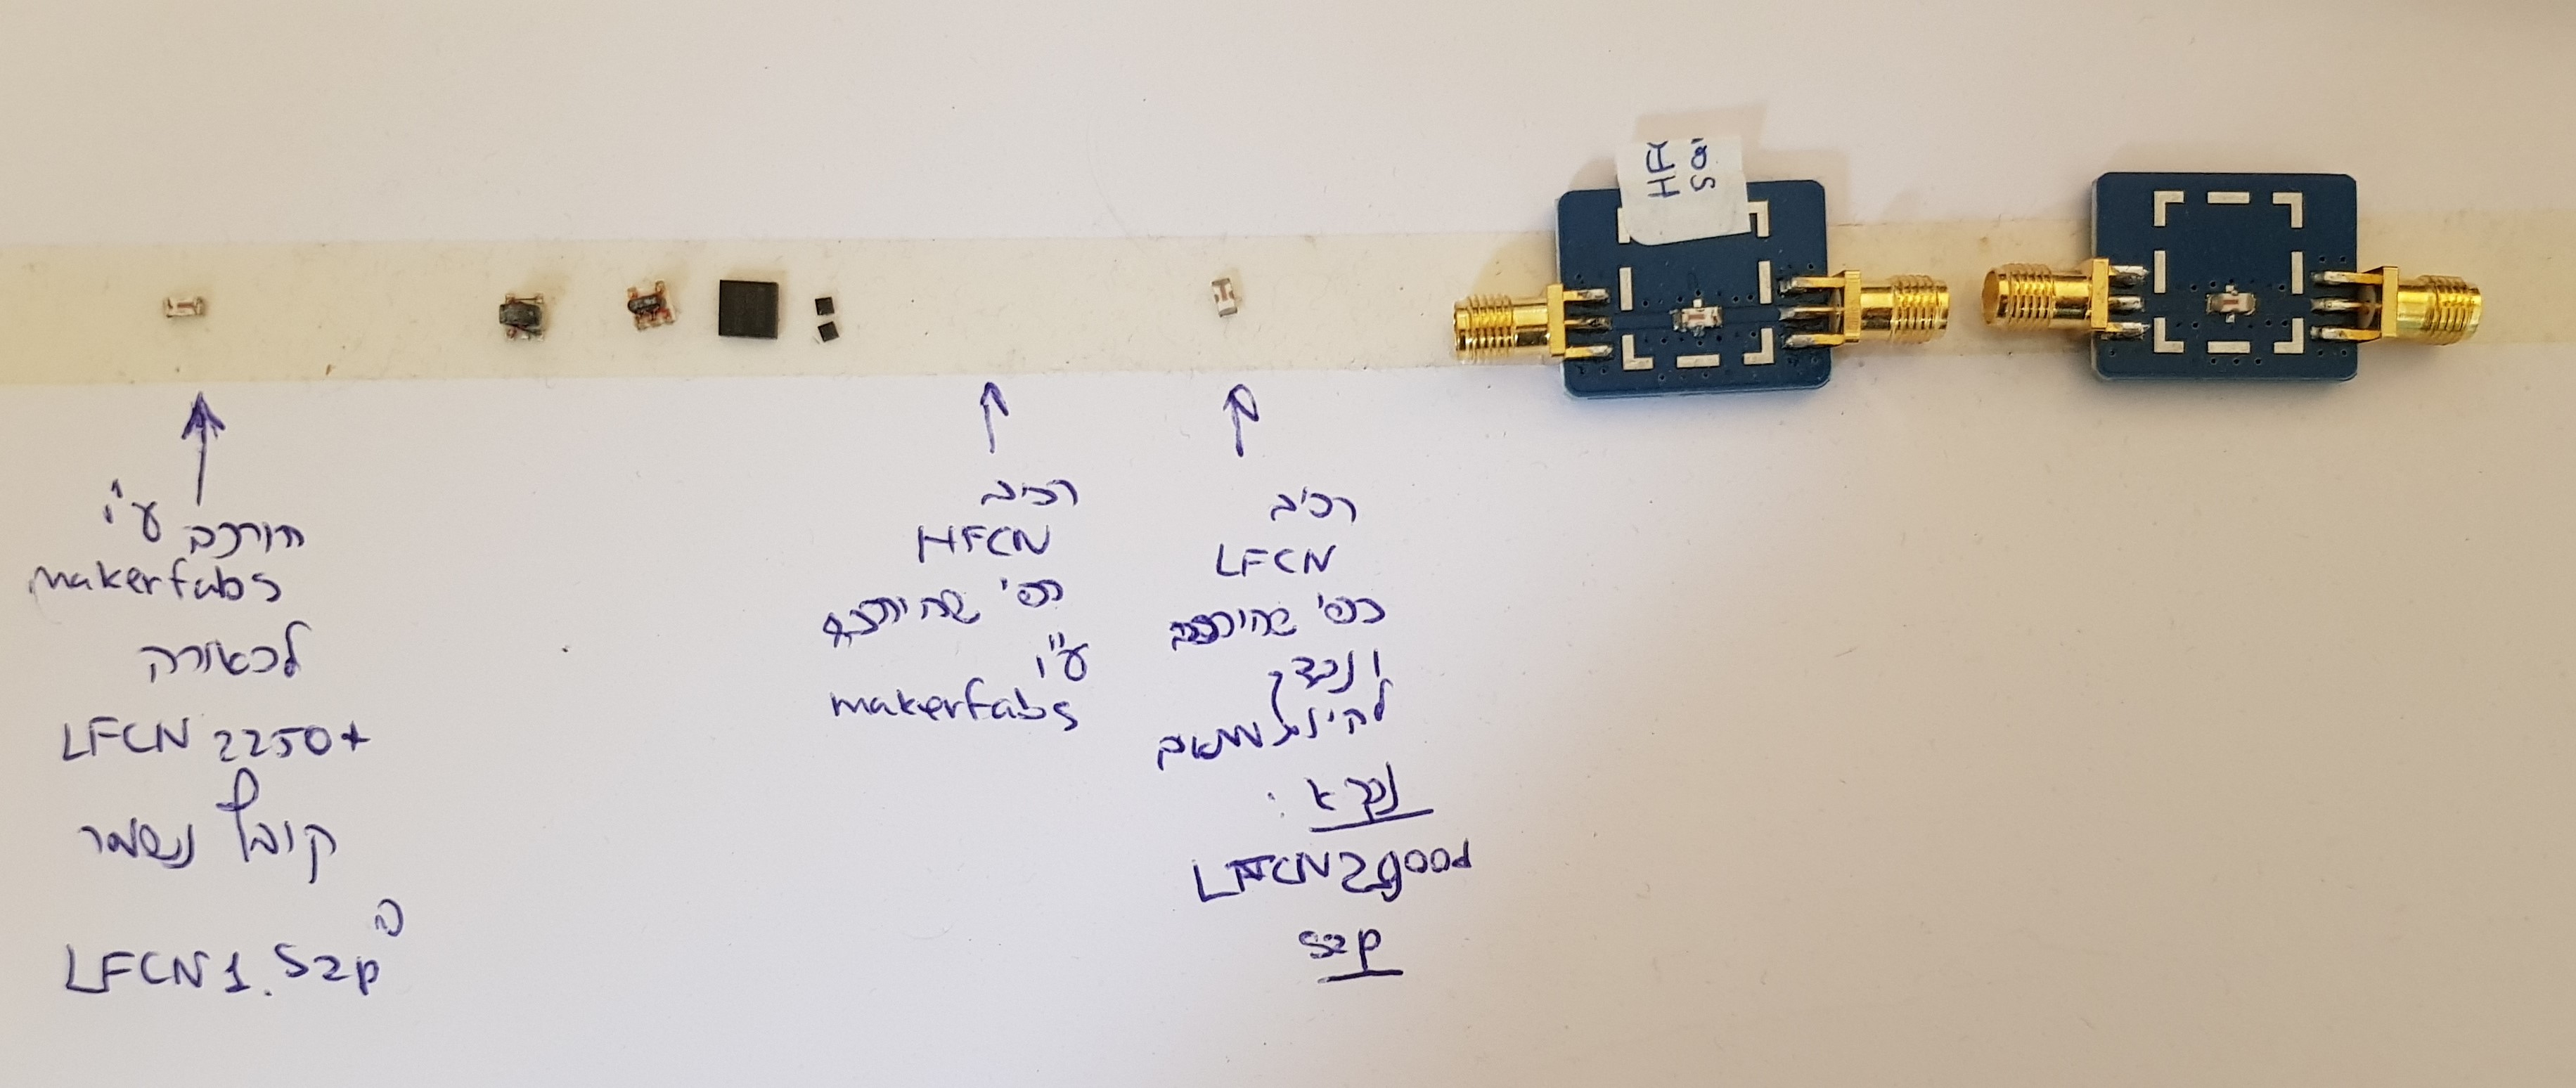 HF
Sa
הורכב ע"י
makerfabs
לכאורה
LFCN 2250+
קובץ נשמר
כ
LFCN1.S2p
רכיב
HFCN
כפי שהורכב
ע"י
makerfabs
רכיב
LFCN
כפי שהורכב
ונבדק
נקרא:
LFCN2good
s2p